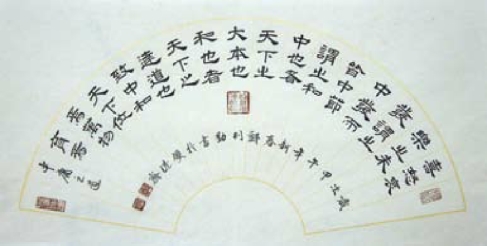 喜怒哀
樂之未
發謂之
中發而
皆中節
謂之和
中也者
天下之
大本也
和也者
天下之
達道也
致中和
天下位
焉萬物
育焉
中庸之道
歲次甲午年新春